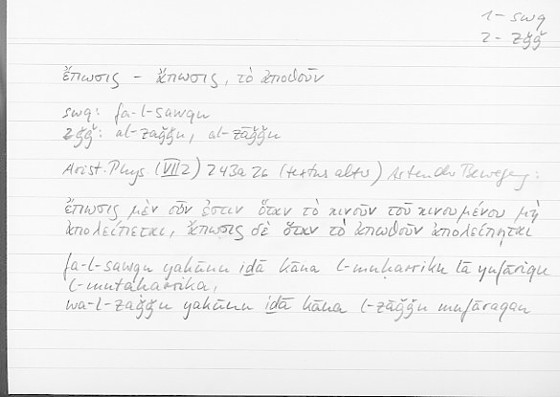 1 - swq
2 - zǧǧ
ἔπωσις – ἄπωσις, τὸ ἀπωθοῦν
swq: fa-l-sawqu
zǧǧ: al-zaǧǧu, al-zāǧǧu
Arist. Phys (VII 2) 243a 26 (textus alter) Arten der Bewegung:
ἔπωσις μὲν οὖν ἐστιν ὅταν τὸ κινοῦν τοῦ κινουμένου μὴ
ἀπολείπεται, ἄπωσις δὲ ὅταν τὸ ἀπωθοῦν ἀπολείπηται
fa-l-sawqu yakūnu iḏā kāna l-muḥarriku lā yufāriqu
l-mutaḥarrika,
wa-l-zaǧǧu yakūnu iḏā kāna l-zāǧǧu mufāraqan